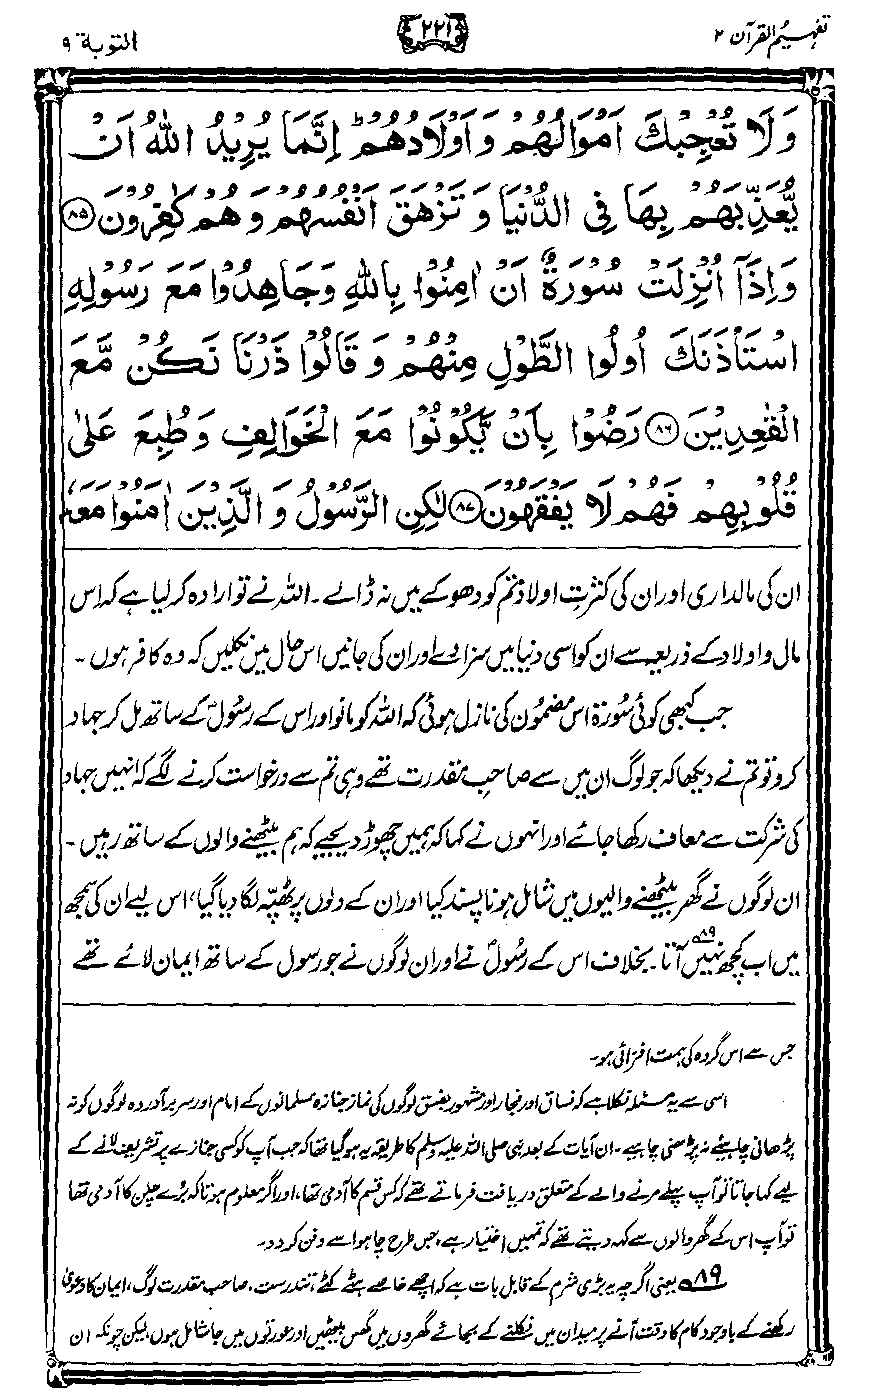 تفہیم القرآن ۲
۲۲۱
التوبة ۹
وَلَا تُعْجِبْكَ اَمْوَالُهُمْ وَاَوْلَادُهُمْ ؕ اِنَّمَا يُرِيْدُ اللّٰهُ اَنْ
يُّعَذِّبَهُمْ بِهَا فِي الدُّنْيَا وَ تَزْهَقَ اَنْفُسُهُمْ وَ هُمْ كٰفِرُوْنَ ﴿۸۵﴾
وَاِذَآ اُنْزِلَتْ سُوْرَةٌ اَنْ اٰمِنُوْا بِاللّٰهِ وَجَاهِدُوْا مَعَ رَسُوْلِهِ
اسْتَاْذَنَكَ اُولُوا الطَّوْلِ مِنْهُمْ وَ قَالُوْا ذَرْنَا نَكُنْ مَّعَ
الْقٰعِدِيْنَ ﴿۸۶﴾ رَضُوْا بِاَنْ يَّكُوْنُوْا مَعَ الْخَوَالِفِ وَطُبِعَ عَلٰى
قُلُوْبِهِمْ فَهُمْ لَا يَفْقَهُوْنَ ﴿۸۷﴾ لٰكِنِ الرَّسُوْلُ وَ الَّذِيْنَ اٰمَنُوْا مَعَهٗ
ان کی مالداری اور ان کی کثرتِ اولاد تم کو دھوکے میں نہ ڈالے۔ اللہ نے تو ارادہ کر لیا ہے کہ اس
مال و اولاد کے ذریعہ سے ان کو اسی دنیا میں سزا دے اور ان کی جانیں اس حال میں نکلیں کہ وہ کافر ہوں۔
جب کبھی کوئی سُورۃ اس مضمون کی نازل ہوئی کہ اللہ کو مانو اور اس کے رسُولؐ کے ساتھ مل کر جہاد
کرو تو تم نے دیکھا کہ جو لوگ ان میں سے صاحبِ مقدرت تھے وہی تم سے درخواست کرنے لگے کہ انہیں جہاد
کی شرکت سے معاف رکھا جائے اور انہوں نے کہا کہ ہمیں چھوڑ دیجیے کہ ہم بیٹھنے والوں کے ساتھ رہیں۔
ان لوگوں نے گھر بیٹھنے والیوں میں شامل ہونا پسند کیا اور ان کے دلوں پر ٹھپّہ لگا دیا گیا، اس لیے ان کی سمجھ
میں اب کچھ نہیں آتا۔ ۸۹ بخلاف اس کے رسُولؐ نے اور ان لوگوں نے جو رسول کے ساتھ ایمان لائے تھے
جس سے اس گروہ کی ہمت افزائی ہو۔
اسی سے یہ مسئلہ نکلا ہے کہ فساق اور فجار اور مشہور بفسق لوگوں کی نماز جنازہ مسلمانوں کے امام اور سربرآوردہ لوگوں کو نہ
پڑھانی چاہیے نہ پڑھنی چاہیے۔ ان آیات کے بعد نبی صلی اللہ علیہ وسلم کا طریقہ یہ ہو گیا تھا کہ جب آپ کو کسی جنازے پر تشریف لانے کے
لیے کہا جاتا تو آپ پہلے مرنے والے کے متعلق دریافت فرماتے تھے کہ کس قسم کا آدمی تھا، اور اگر معلوم ہوتا کہ بُرے چلن کا آدمی تھا
تو آپ اس کے گھر والوں سے کہہ دیتے تھے کہ تمہیں اختیار ہے، جس طرح چاہو اسے دفن کر دو۔
۸۹ یعنی اگرچہ یہ بڑی شرم کے قابل بات ہے کہ اچھے خاصے ہٹے کٹے، تندرست، صاحب مقدرت لوگ، ایمان کا دعویٰ
رکھنے کے باوجود کام کا وقت آنے پر میدان میں نکلنے کے بجائے گھروں میں گھس بیٹھیں اور عورتوں میں جا شامل ہوں، لیکن چونکہ ان